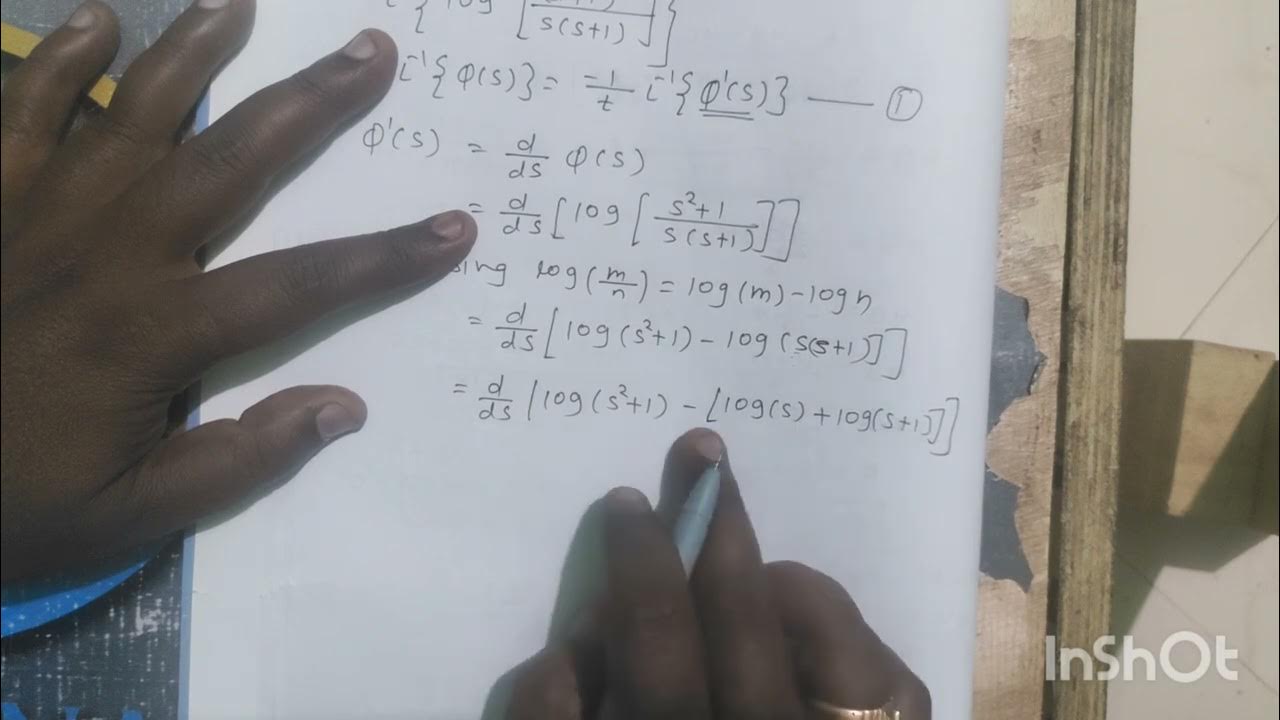 L⁻¹{ log [ s²+1 / s(s+1) ] }
L⁻¹{φ(s)} = -1/t L⁻¹{φ'(s)} —— ①
φ'(s) = d/ds φ(s)
= d/ds [log [ s²+1 / s(s+1) ]]
log(m/n) = log(m) - log n
= d/ds [log(s²+1) - log(s(s+1)]]
= d/ds [log(s²+1) - [log(s) + log(s+1)]]
InShOt